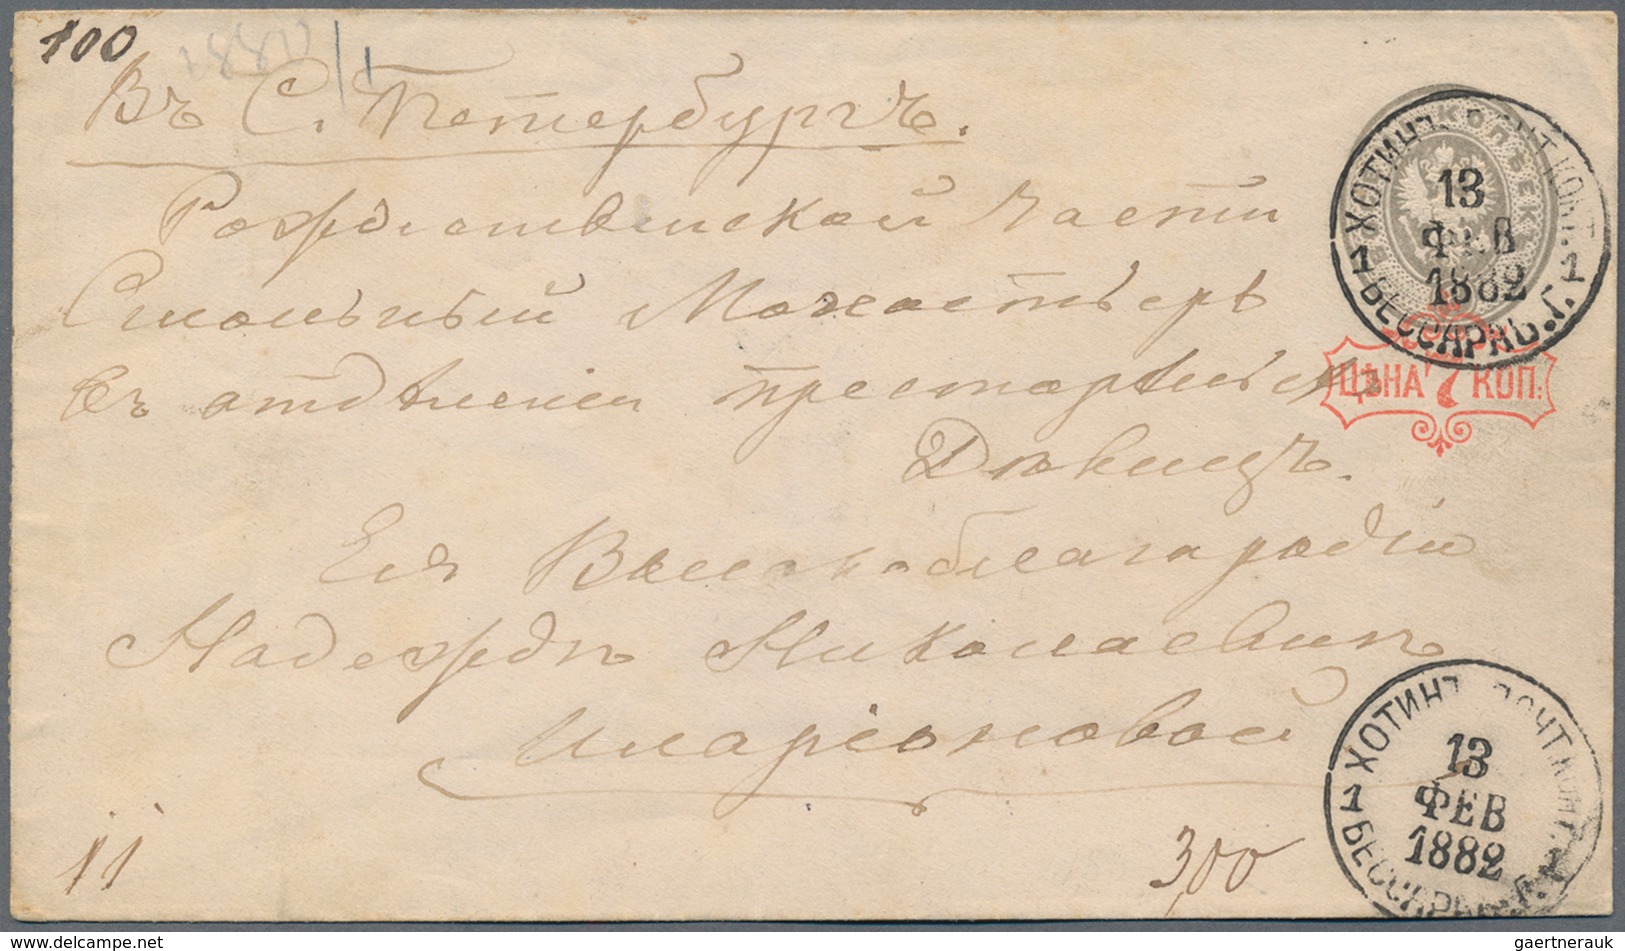 100
1880/1
Въ С. Петербургъ.
Рождественской части
Смольный Монастырь
въ отдѣленіи престарѣлыхъ
Дѣвицъ.
Ея Высокоблагородію
Надеждѣ Николаевнѣ
Иларіоновой
11
300
ХОТИНЪ ПОЧТ.КОНТ.
13
ФЕВ
1882
1 БЕССАРАБ.Г. 1
КОПѢЕКЪ
ЦѢНА 7 КОП.
ХОТИНЪ ПОЧТ.КОНТ.
13
ФЕВ
1882
1 БЕССАРАБ.Г. 1
delcampe.net
gaertnerauk